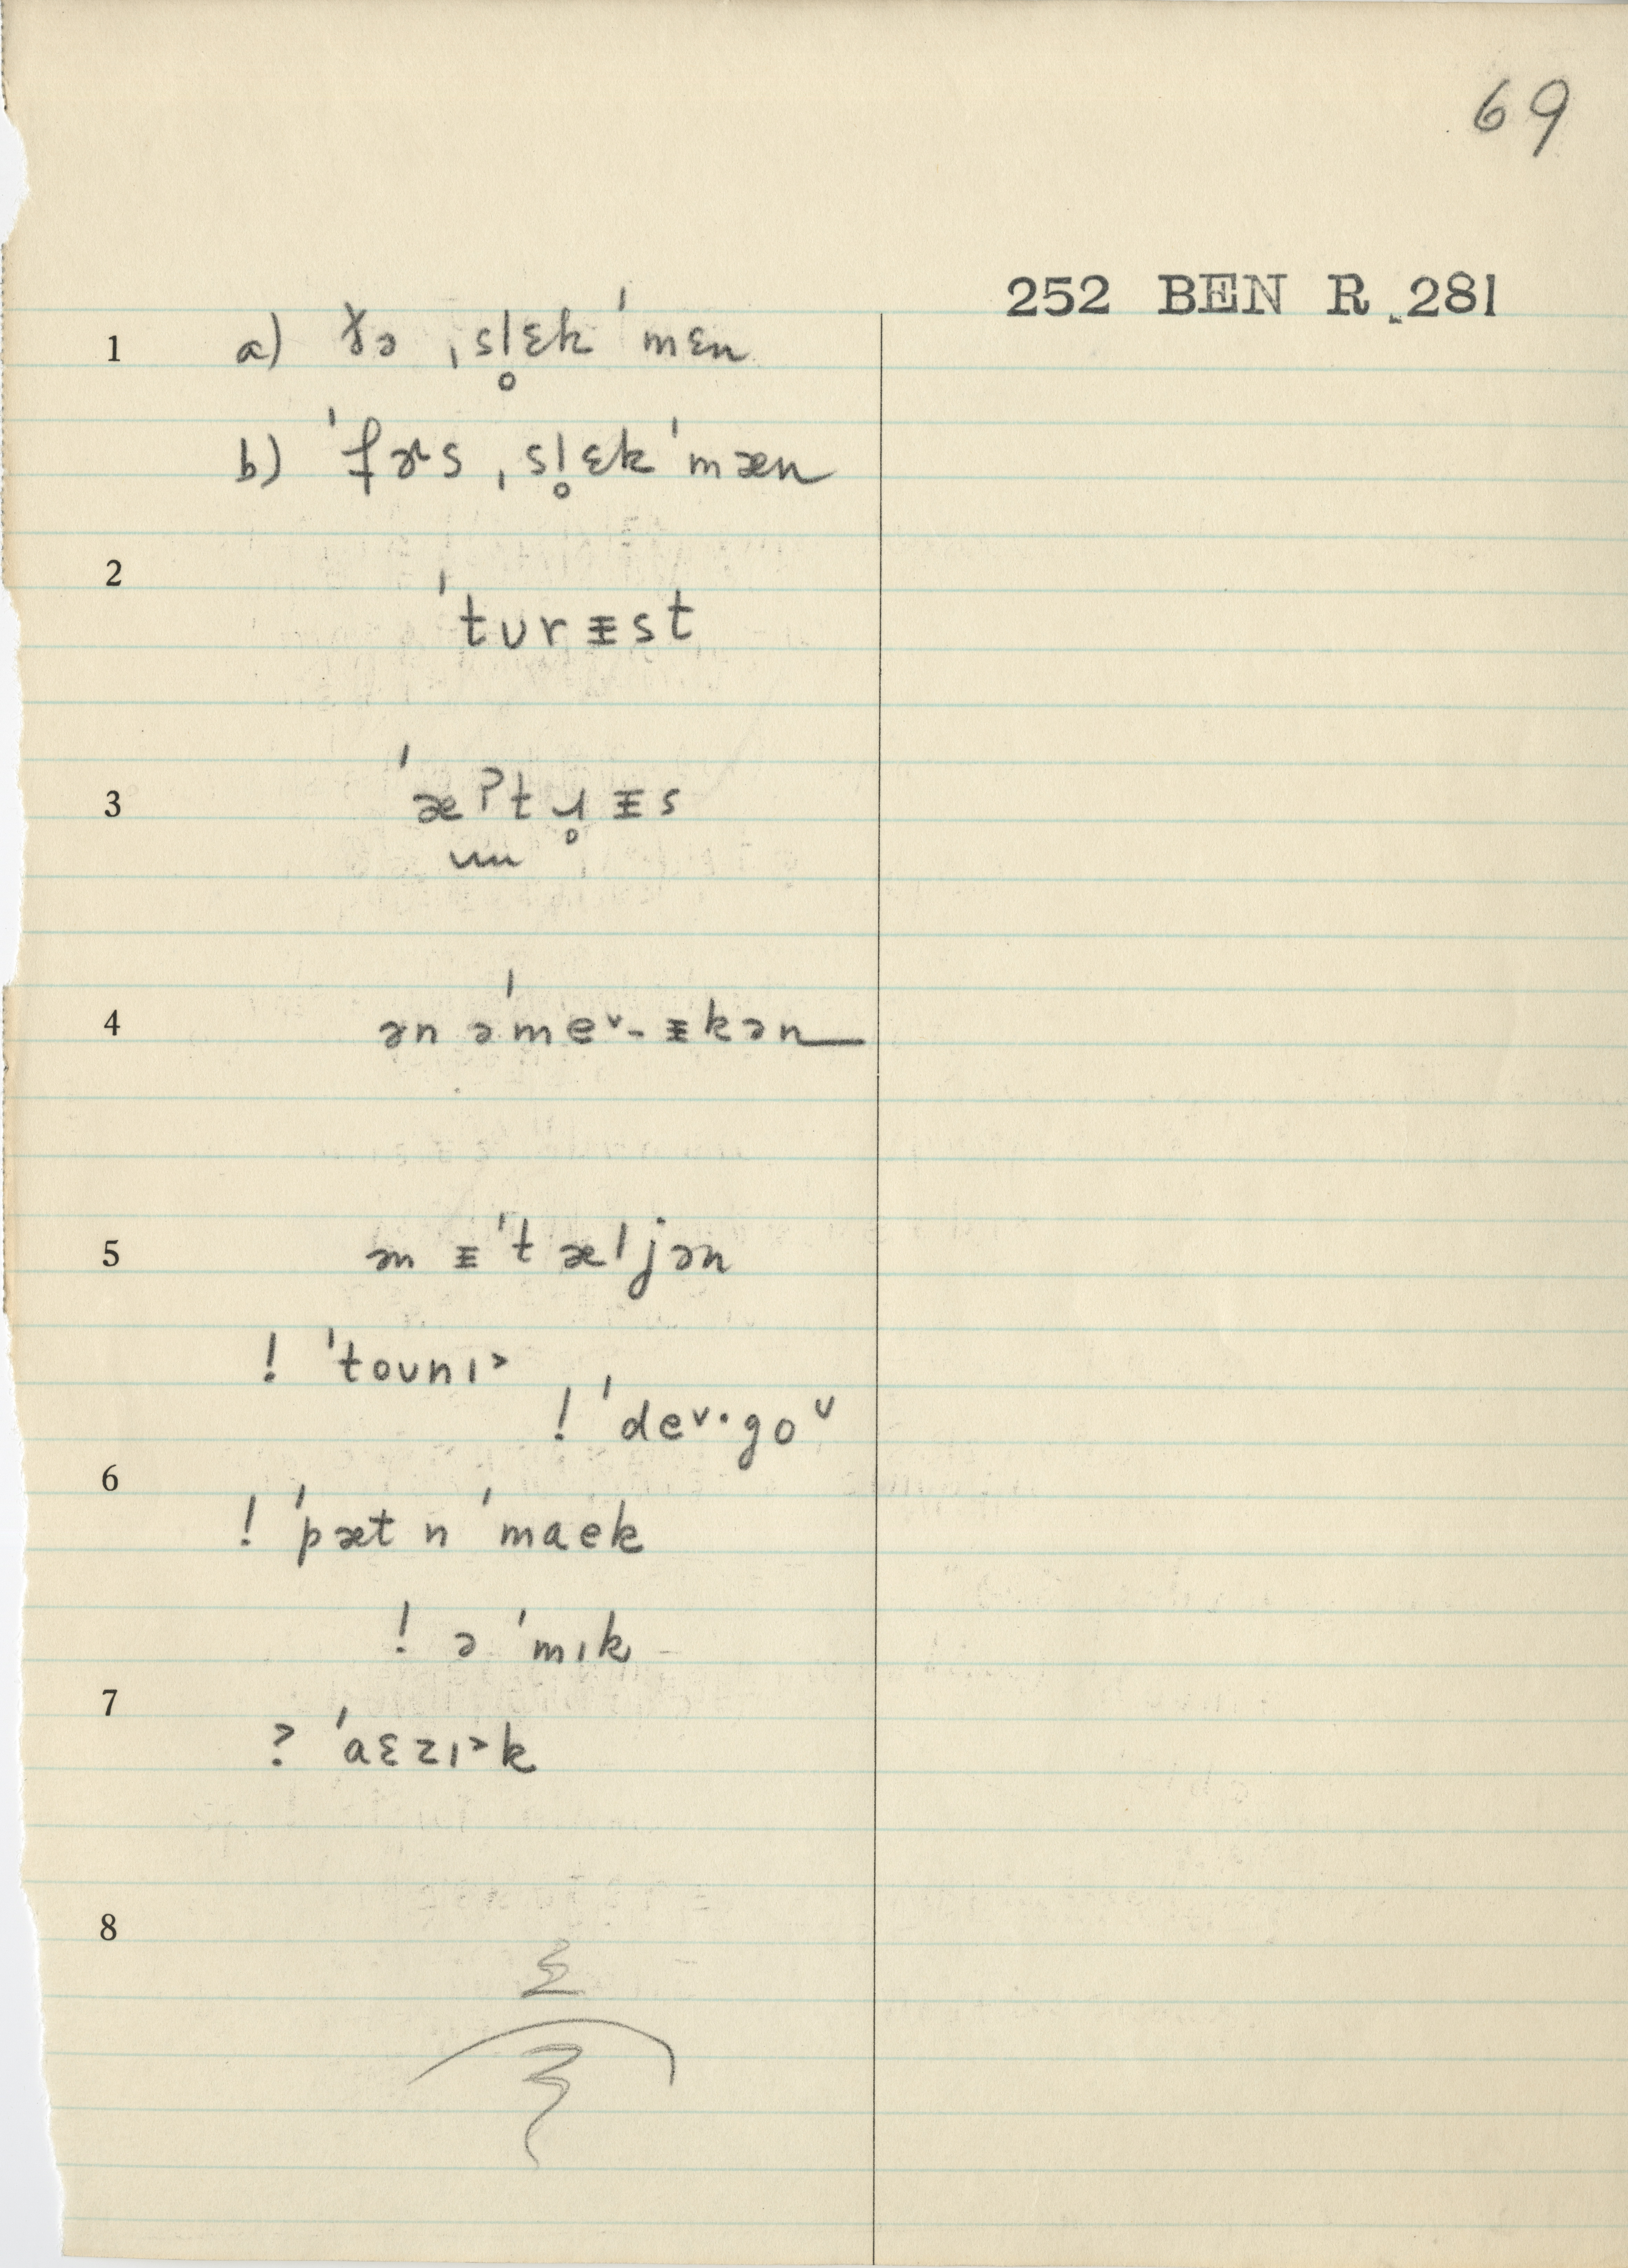 69
252 BEN R. 281
1 a) ðə ˌsl̥ɛk ˈmɛn
b) ˈfɚs ˌsl̥ɛk ˈmæn
2
ˈtʊrɪst
3 ˈæʔtɹ̥ɪs
4 ən əˈme˅-ɪkən
5 ən ɪˈtæljən
! ˈtoʊnɪ˃
! ˈde˅·goᵛ
6
! ˈpæt n ˈmaek
! ə ˈmɪk
7
? ˈaɛzɪ˃k
8